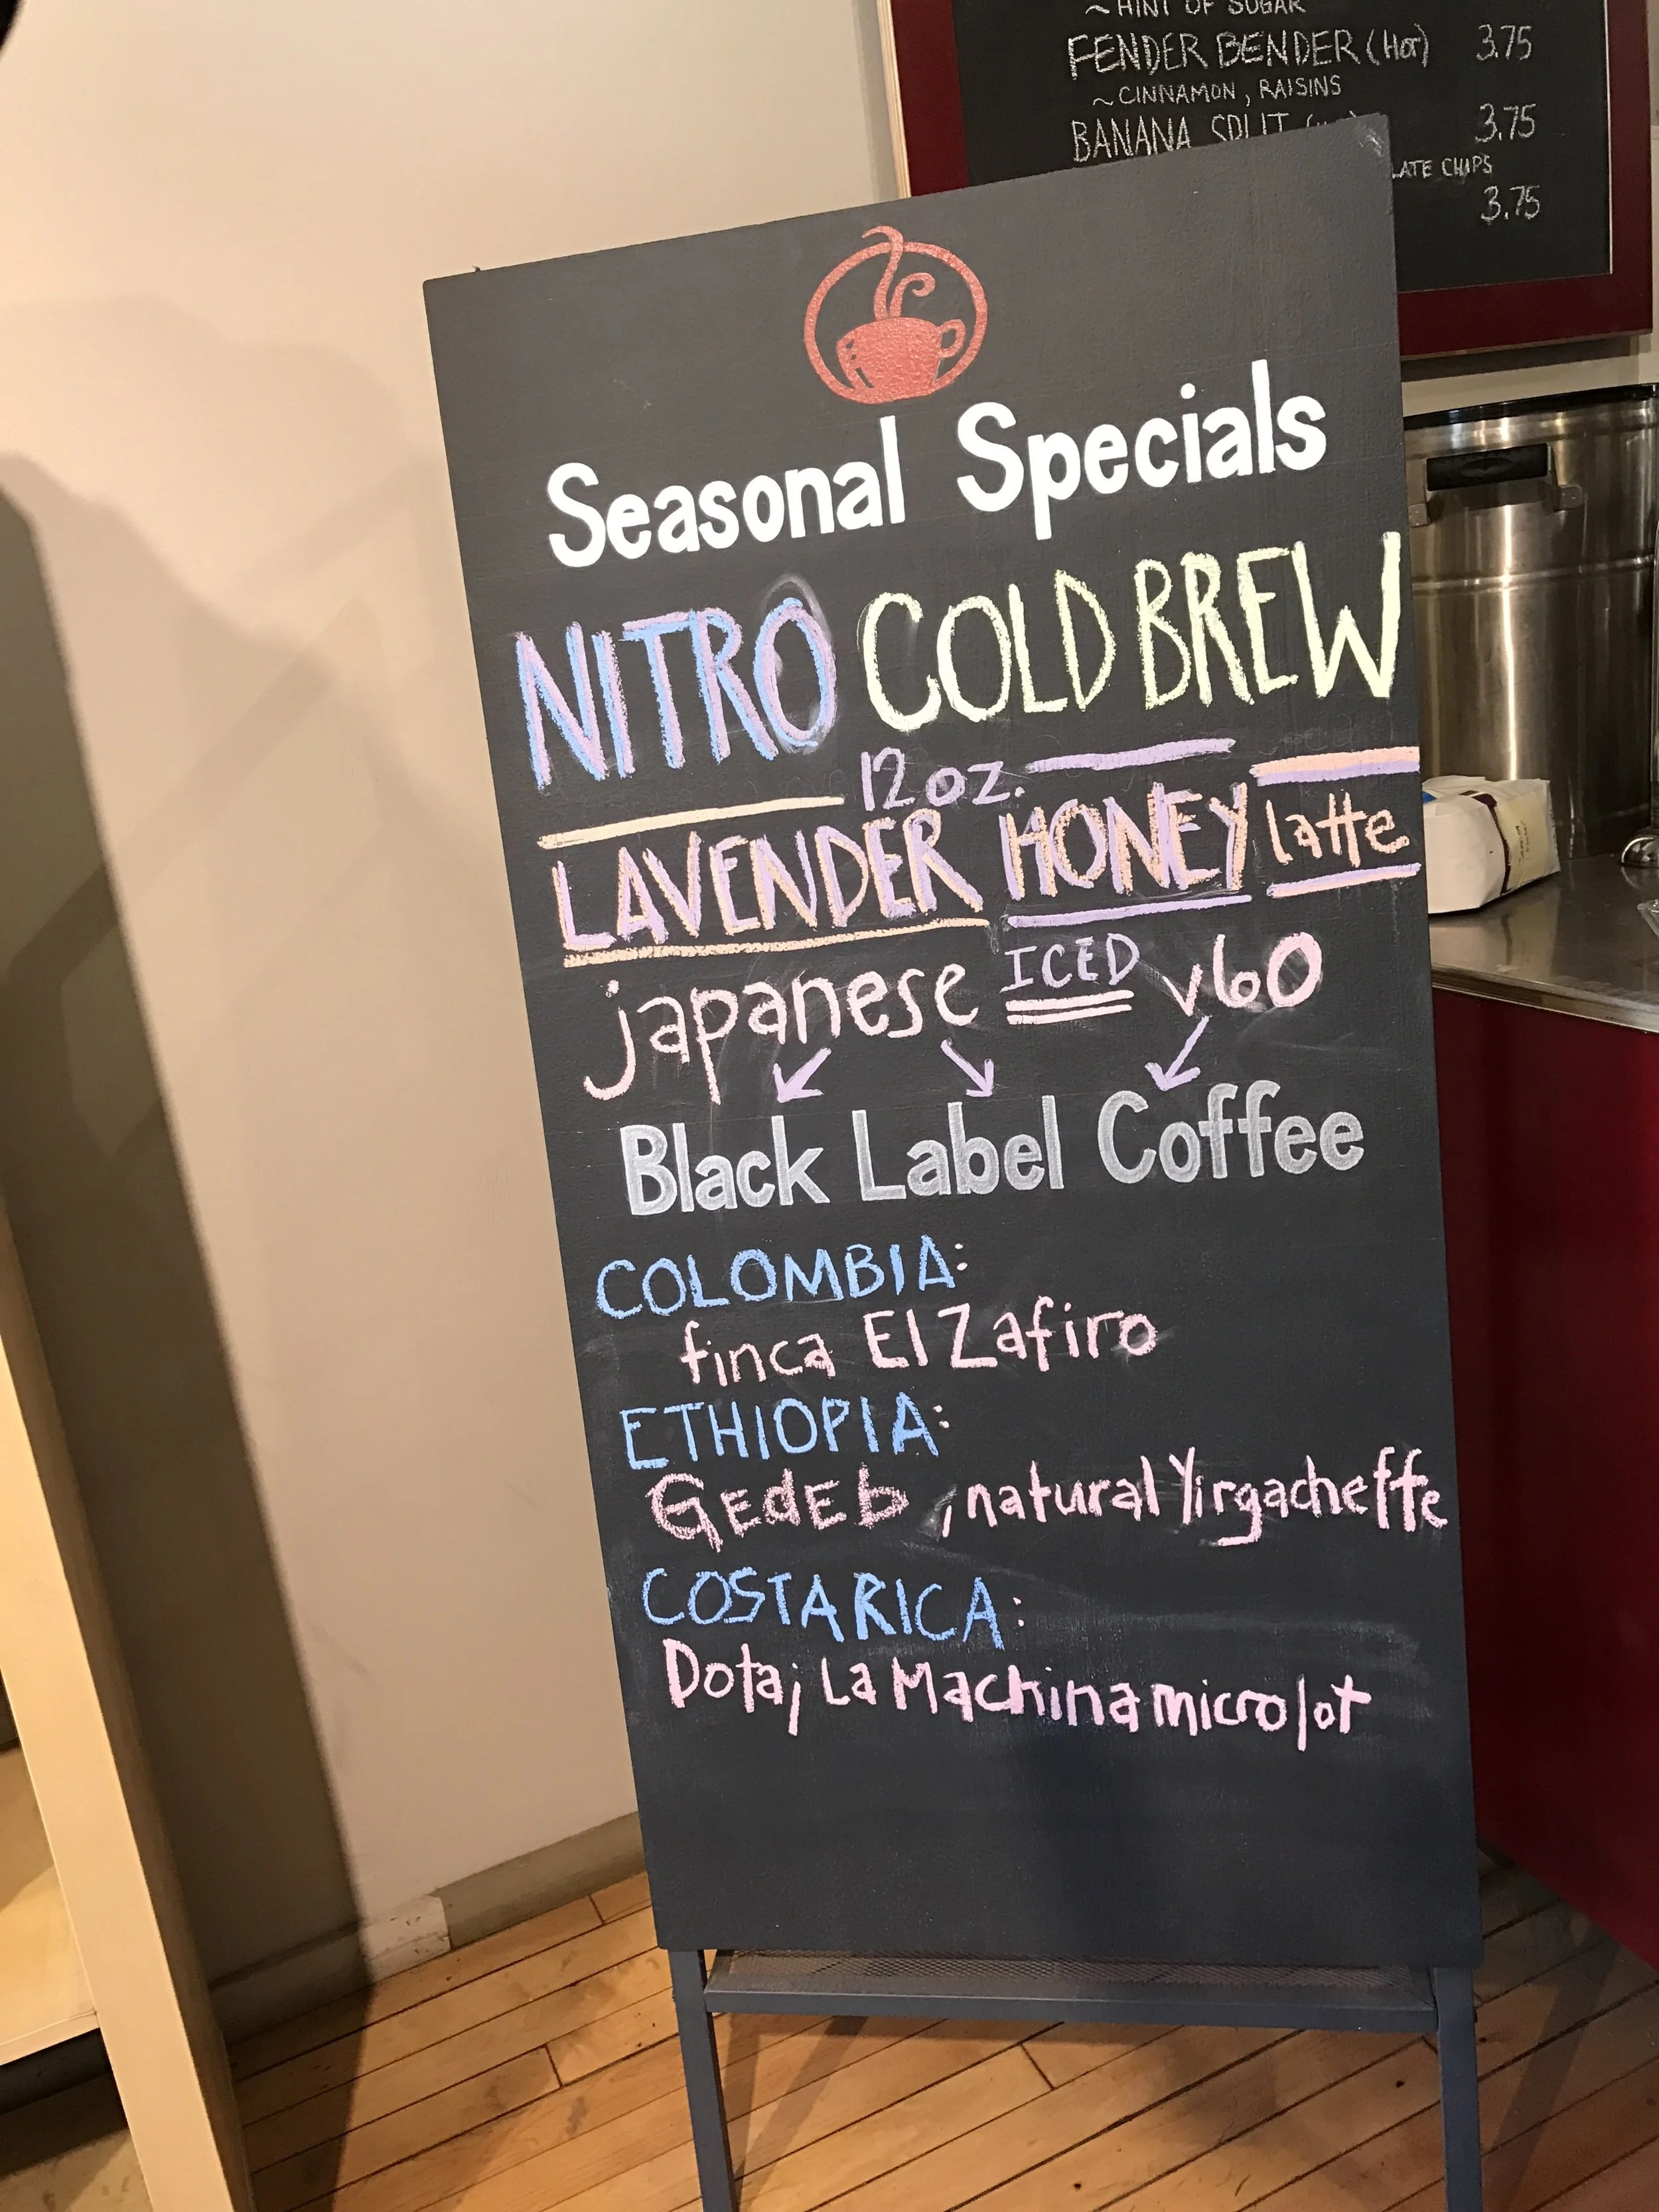 ~HINT OF SUGAR
FENDER BENDER (HOT) 3.75
~CINNAMON, RAISINS
BANANA SPLIT 3.75
CHIPS
3.75
Seasonal Specials
NITRO COLD BREW
12 oz.
LAVENDER HONEY latte
japanese ICED v60
Black Label Coffee
COLOMBIA:
finca El Zafiro
ETHIOPIA:
GEdEb, natural Yirgacheffe
COSTA RICA:
Dota; La Machina microlot